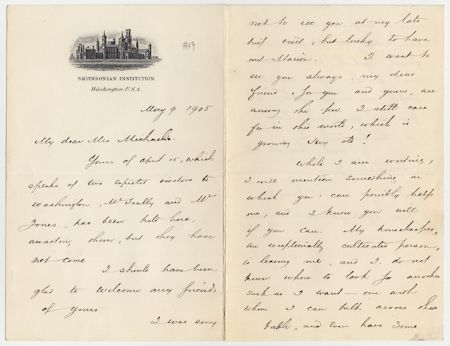 A19
SMITHSONIAN INSTITUTION
Washington U.S.A.
May 9 1905
My dear Mrs Michaelis
Yours of April 15, which
speaks of two expected visitors to
Washington, Mr Scully and Mr
Jones, has been held here,
awaiting them, but they have
not come
I should have been
glad to welcome any friends
of yours
I was sorry
not to see you at my late
brief visit, but lucky to have
met Marion. I want to
see you always my dear
friend, for you and yours, are
among the few I still care
for in this world, which is
growing very old!
While I am writing,
I will mention something in
which you can possibly help
me, and I know you will
if you can. My housekeeper,
an exceptionally cultivated person,
is leaving me, and I do not
know where to look for another
such as I want – one with
whom I can talk across the
table, and even have some